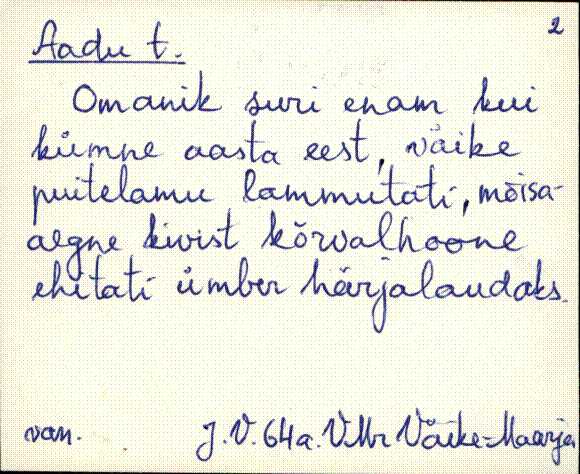 2
Aadu t.
Omanik suri enam kui
kümne aasta eest, väike
puitelamu lammutati, mõisa-
aegne kivist kõrvalhoone
ehitati ümber härjalaudaks.
van. J. V. 64a. VMr Väike-Maarja